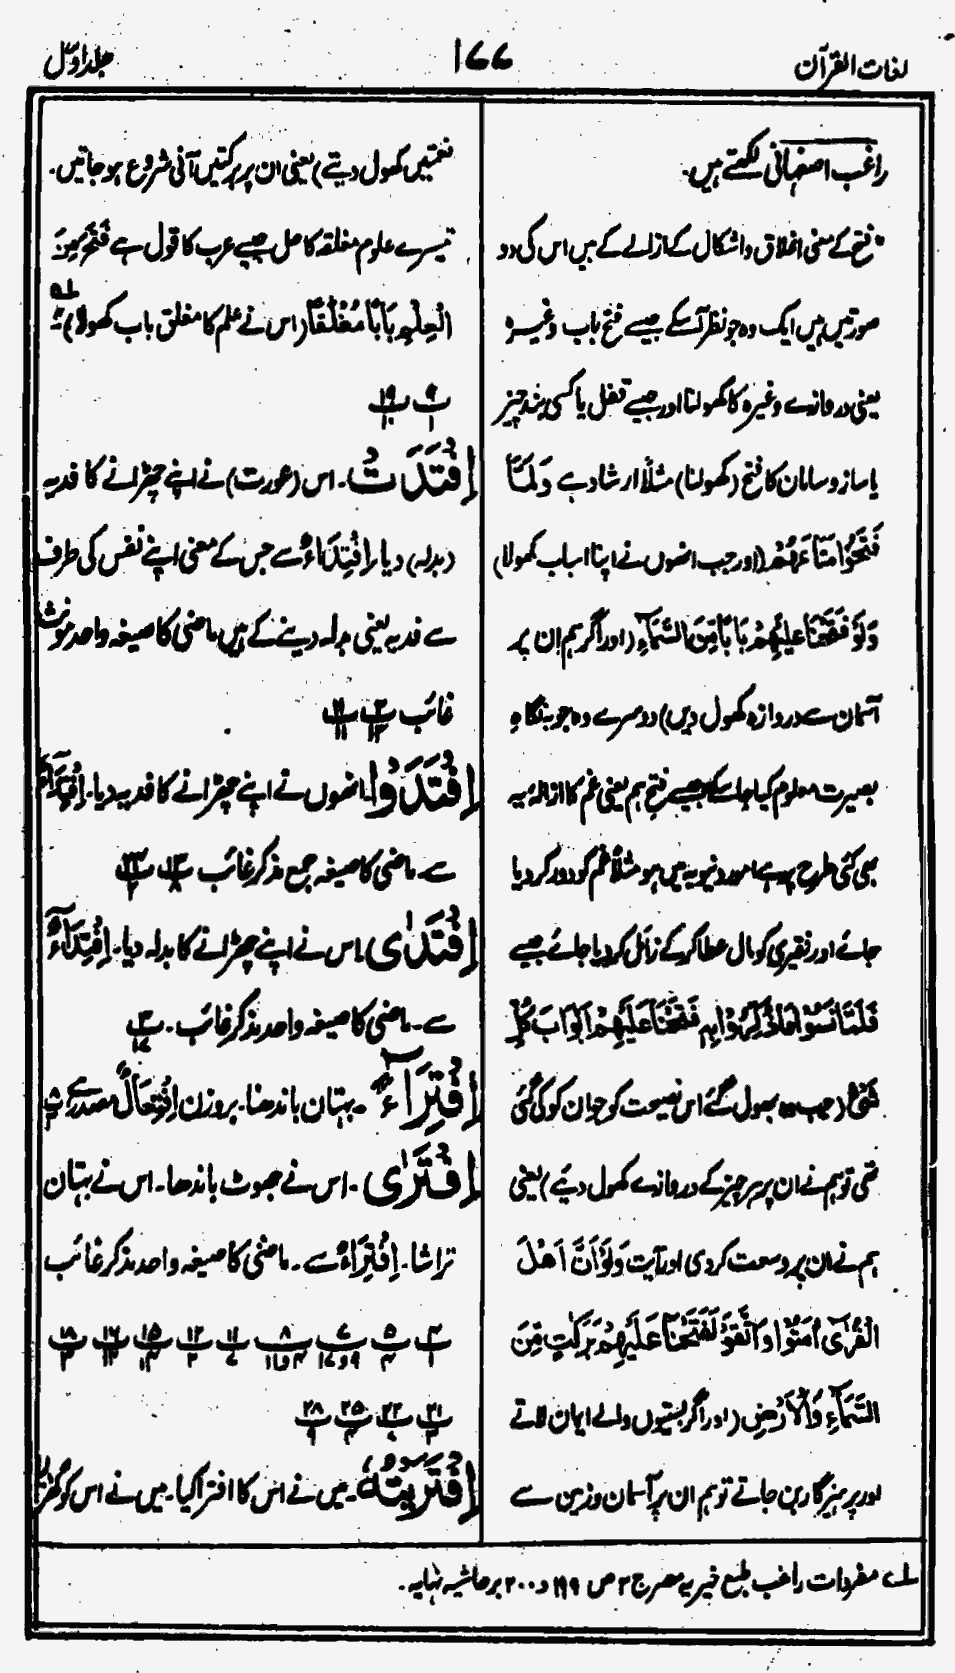 لغات القرآن
۱۷۷
جلد اول
راغب اصفہانی لکھتے ہیں۔
"فتح کے معنی اغلاق و اشکال کے ازالے کے ہیں اس کی دو
صورتیں ہیں ایک وہ جو نظر آ سکے جیسے فتح باب وغیرہ
یعنی دروازے وغیرہ کا کھولنا اور جیسے قفل یا کسی بند چیز
یا ساز و سامان کا فتح (کھولنا) مثلاً ارشاد ہے وَلَمَّا
فَتَحُوْا مَتَاعَهُمْ (اور جب انھوں نے اپنا اسباب کھولا)
وَلَوْ فَتَحْنَا عَلَيْهِمْ بَابًا مِّنَ السَّمَآءِ (اور اگر ہم ان پر
آسمان سے دروازہ کھول دیں) دوسرے وہ جو بنگاہِ
بصیرت معلوم کیا جا سکے جیسے فتحِ ہم یعنی غم کا ازالہ یہ
بھی کئی طرح پر ہے امور دنیویہ میں ہو مثلاً غم کو دور کر دیا
جائے اور فقیری کو مال عطا کر کے زائل کر دیا جائے جیسے
فَلَمَّا نَسُوْا مَا ذُكِّرُوْا بِهٖ فَتَحْنَا عَلَيْهِمْ اَبْوَابَ كُلِّ
شَیْءٍ (جب وہ بھول گئے اس نصیحت کو جو ان کو کی گئی
تھی تو ہم نے ان پر ہر چیز کے دروازے کھول دیئے) یعنی
ہم نے ان پر وسعت کر دی اور آیت وَلَوْ اَنَّ اَهْلَ
الْقُرٰٓى اٰمَنُوْا وَاتَّقَوْا لَفَتَحْنَا عَلَيْهِمْ بَرَكٰتٍ مِّنَ
السَّمَآءِ وَالْاَرْضِ (اور اگر بستیوں والے ایمان لاتے
اور پرہیزگار بن جاتے تو ہم ان پر آسمان و زمین سے
نعمتیں کھول دیتے) یعنی ان پر برکتیں آنی شروع ہو جاتیں۔
تیسرے علوم مغلقہ کا حل جیسے عرب کا قول ہے فَتَحَ مِنَ
الْعِلْمِ بَابًا مُغْلَقًا (اس نے علم کا مغلق باب کھولا)
پ۹ ۱ پ۱۹ ۱۰
اِفْتَدَتْ۔ اس (عورت) نے اپنے چھڑانے کا فدیہ
(بدلہ) دیا۔ اِفْتِدَاءٌ سے جس کے معنی اپنے نفس کی طرف
سے فدیہ یعنی بدلہ دینے کے ہیں ماضی کا صیغہ واحد مونث
غائب پ۲ ۱۳ پ۱۱ ۱۱
اِفْتَدَوْا۔ انھوں نے اپنے چھڑانے کا فدیہ دیا۔ اِفْتِدَاءٌ
سے۔ ماضی کا صیغہ جمع مذکر غائب پ۱۳ ۸ پ۲۴ ۲
اِفْتَدٰى۔ اس نے اپنے چھڑانے کا بدلہ دیا۔ اِفْتِدَآءٌ
سے۔ ماضی کا صیغہ واحد مذکر غائب۔ پ۳ ۱۷
اِفْتِرَآءً۔ بہتان باندھنا۔ بروزن اِفْتِعَالٌ مصدر ہے پ۸
اِفْتَرٰى۔ اس نے جھوٹ باندھا۔ اس نے بہتان
تراشا۔ اِفْتِرَاءٌ سے۔ ماضی کا صیغہ واحد مذکر غائب
پ۴ ۱ پ۵ ۴ پ۷ ۹ و ۱۷ پ۸ ۴ و ۱۱ پ۱۱ ۷ پ۱۲ ۲ پ۱۵ ۱۴ پ۱۶ ۱۲ پ۱۸ ۳
پ۲۱ ۳ پ۲۲ ۷ پ۲۵ ۴ پ۲۸ ۹
اِفْتَرَيْتُهٗ۔ میں نے اس کا افترا کیا۔ میں نے اس کو گھڑ
لہ مفردات راغب طبع خیریہ مصر ج ۳ ص ۱۹۹ و ۲۰۰ بر حاشیہ نہایہ۔